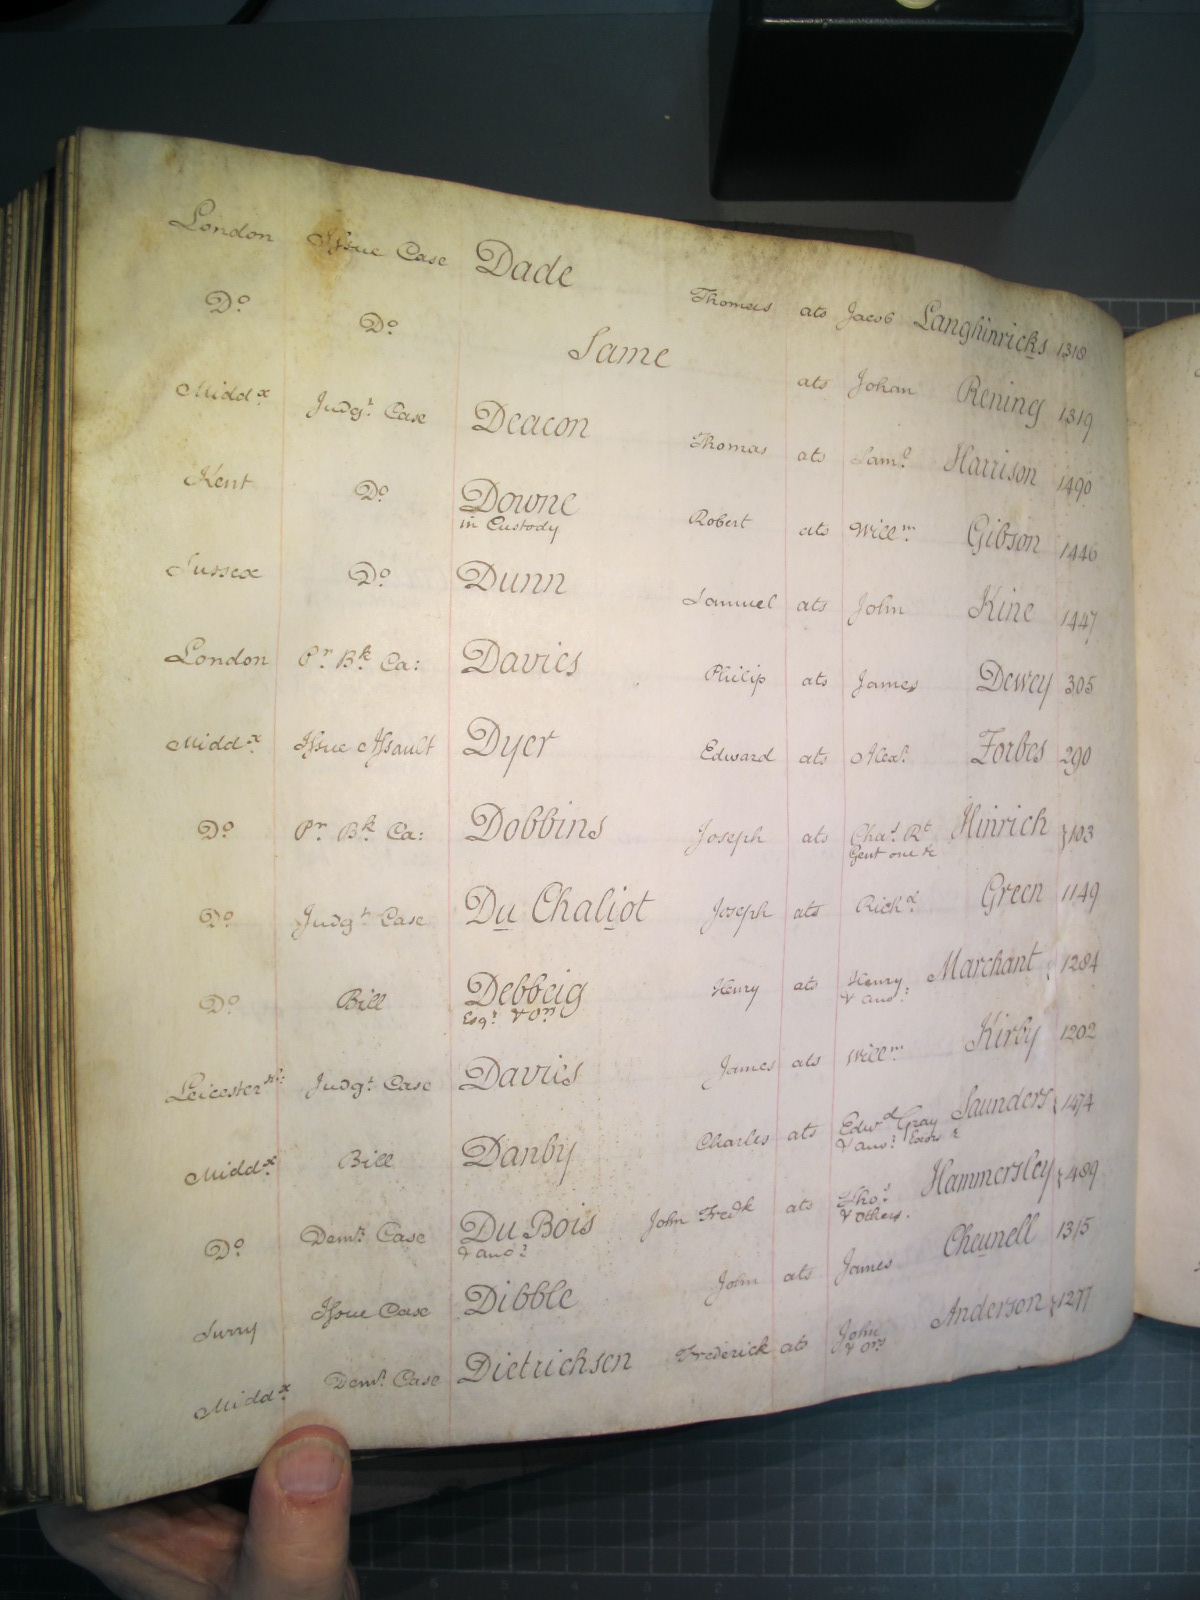 London Issue Case Dade Thomas ats Jacob Langhinricks 1318
Do. Do. Same ats Johan Rening 1319
Middx. Judgt. Case Deacon Thomas ats Saml. Harrison 1490
Kent Do. Downe Robert ats Willm. Gibson 1446
in Custody
Sussex Do. Dunn Samuel ats John Kine 1447
London Pr. Bk. Ca: Davies Philip ats James Dewey 305
Middx. Issue Assault Dyer Edward ats Alexr. Forbes 290
Do. Pr. Bk. Ca: Dobbins Joseph ats Chas. Rt. Hinrich 103
Gent one &c
Do. Judgt. Case Du Chaliot Joseph ats Richd. Green 1149
Do. Bill Debbeig Henry ats Henry Marchant 1284
Esqr. & or. & anor.
Leicestersh: Judgt. Case Davies James ats Willm. Kirby 1202
Middx. Bill Danby Charles ats Edwd. Gray Saunders 1474
& anor.
Do. Demr. Case Du Bois John Fredk ats Thos. Hammersley 489
& anor. & others.
Surry Issue Case Dibble John ats James Cheunell 1315
Middx. Demr. Case Dietrichsen Frederick ats John Anderson 1277
& ors